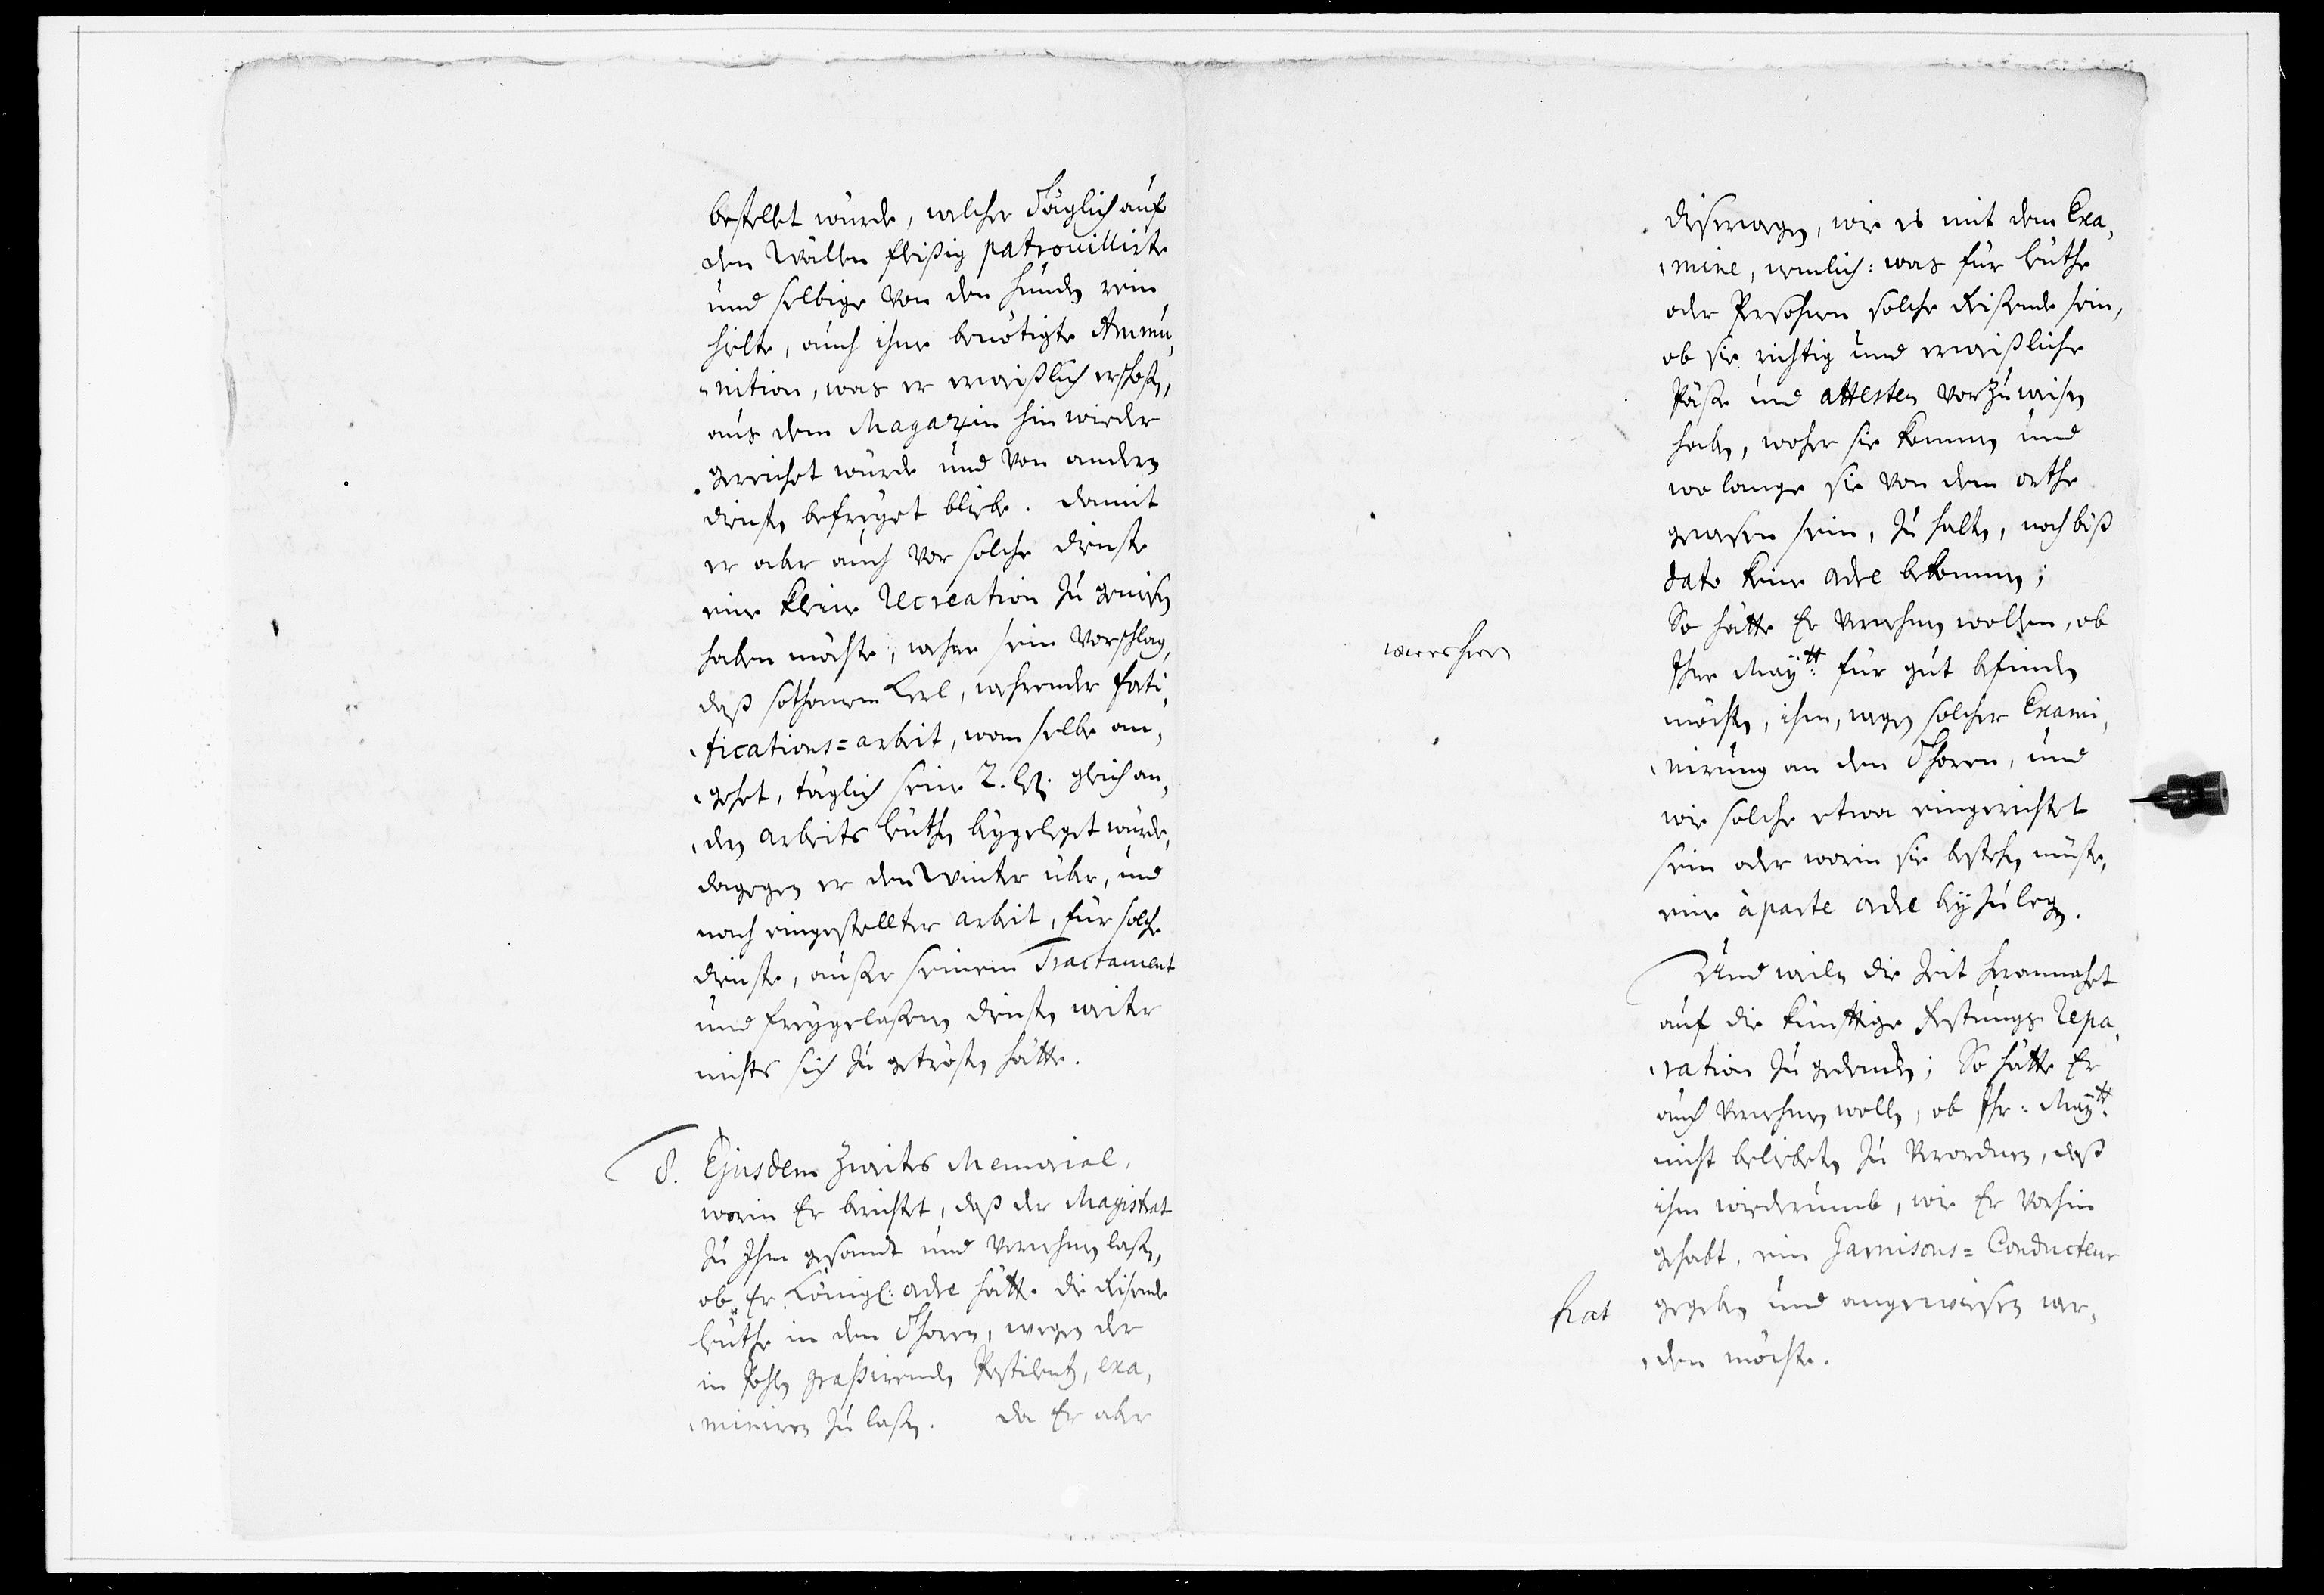 bestellet würde, welcher Täglich auf
den Wällen fleißig patrouillirte
und selbige von den hunden rein
hielte, auch ihme benötigte Ammu¬
nition, was er erweißlich erschoßen,
aus dem Magazin hinwieder
gereichet würde und von andern
diensten befreyet bliebe. Damit
er aber auch vor solche dienste
eine kleine recreation zu genießen
haben möchte, wehre sein Vorschlag,
daß sothanem Kerl, wehrender
fications=arbeit, wan selbe an¬
gehet, täglich seine 2. gleich an¬
den arbeits leuthen beygeleget würde,
dagegen er den Winter über, und
nach eingestellter arbeit, für solche
dienste, außer seinem Tractament
und freygelaßenen diensten weiter
nichts sich zu getrösten hätte.
8. Ejusdem zweites Memorial,
worin Er berichtet, daß der Magistrat
zu Ihm gesandt und vernehmen laßen,
ob Er Königl: ordre hätte die Reisende
leuthe in den Thoren, wegen der
in Pohlen graßirenden Pestilentz, exa¬
miniren zu laßen. Da Er aber
dießwegen, wie es mit dem Exa¬
mine, nemlich: was für leuthe
oder Persohnen solche Reisende sein,
ob sie richtig und erweißliche
Päße und attesten vorzuweisen
haben, woher sie kommen und
wo lange sie von dem orthe
gewesen sein, zu halten, noch biß
dato keine ordre bekommen;
So hätte Er vernehmen wollen, ob
Ihre Maytt: für gut befinden
möchten, ihm, wegen solcher Exami¬
nirung an den Thoren, und
wie solche etwa eingerichtet
sein oder worin sie bestehen müste,
eine àparte ordre beyzulegen.
Und weiln die Zeit herannahet
auf die künfftige Festungs-Repa¬
ration zu gedencken; So hätte Er
auch vernehmen wollen, ob Ihr: Maytt:
nicht beliebeten zu verordnen, daß
ihm wiederumb, wie Er vorhin
gehabt, ein Garnisons=Conducteur
hat gegeben und angewiesen wer¬
den möchte.